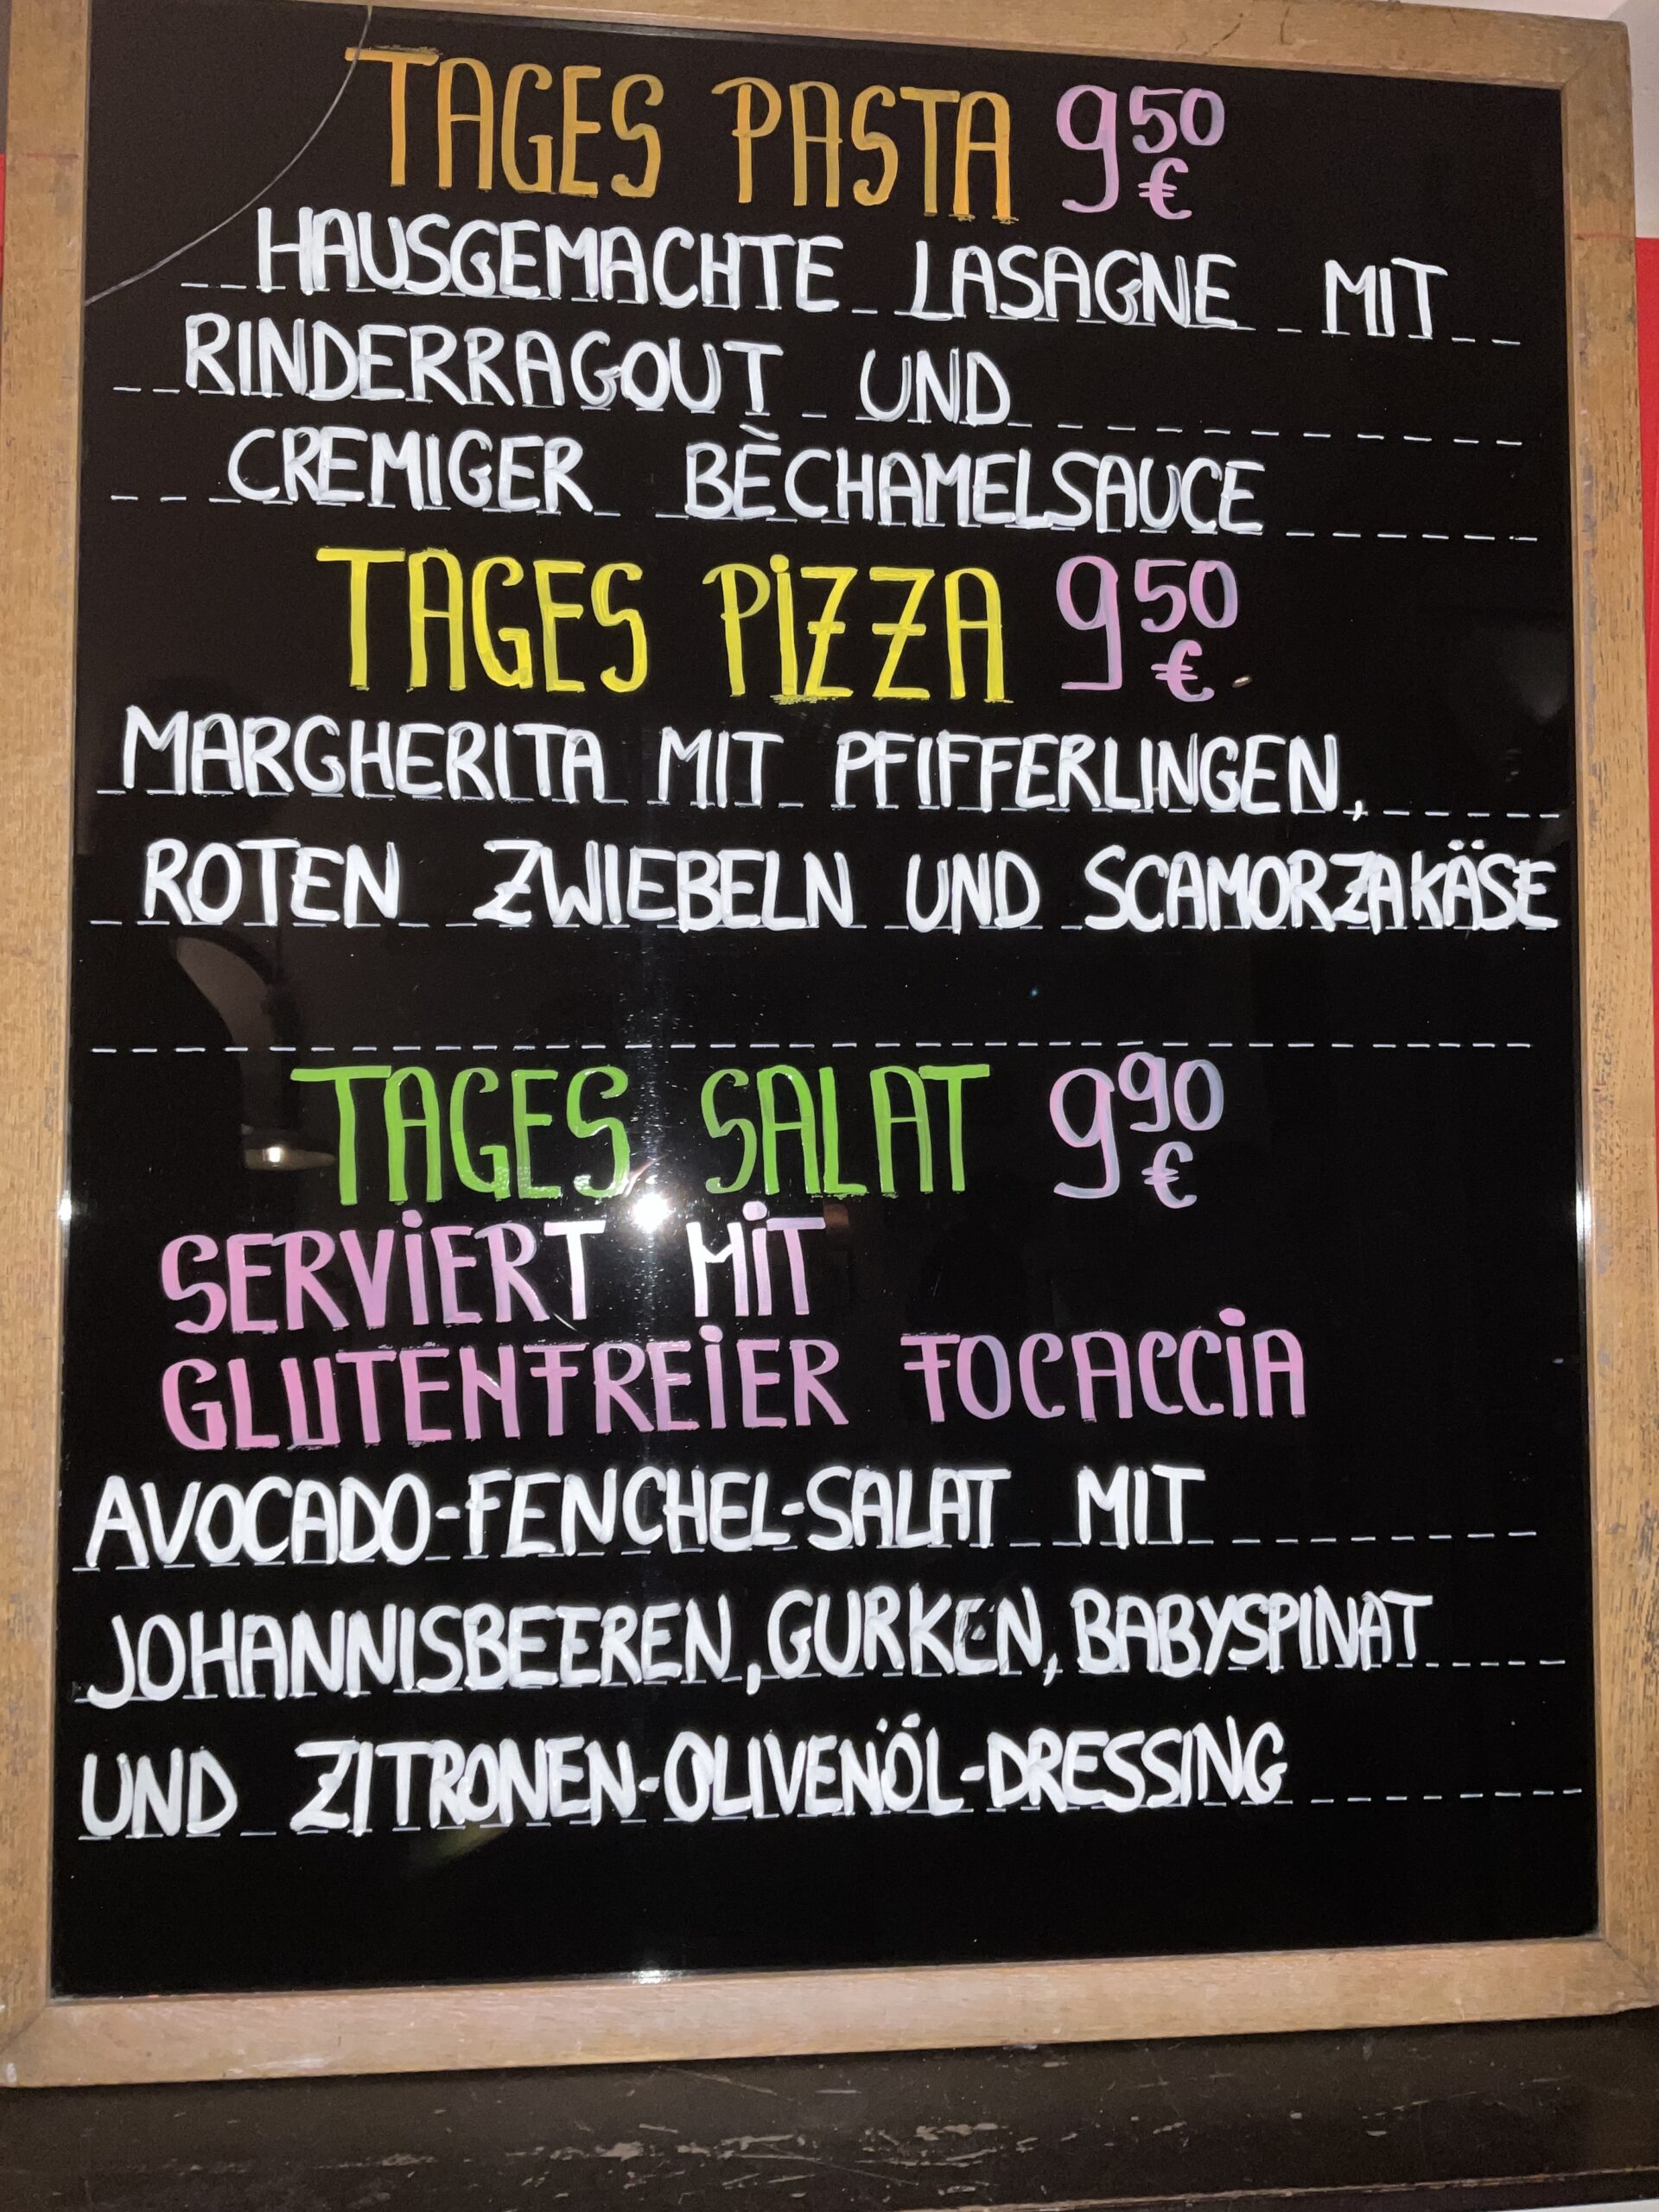 TAGES PASTA 9 50 €
HAUSGEMACHTE LASAGNE MIT
RINDERRAGOUT UND
CREMIGER BÈCHAMELSAUCE
TAGES PiZZA 9 50 €
MARGHERITA MIT PFIFFERLINGEN,
ROTEN ZWIEBELN UND SCAMORZAKÄSE
TAGES SALAT 9 90 €
SERViERT MiT
GLUTENFREiER FOCACCiA
AVOCADO-FENCHEL-SALAT MIT
JOHANNISBEEREN, GURKEN, BABYSPINAT
UND ZITRONEN-OLIVENÖL-DRESSING